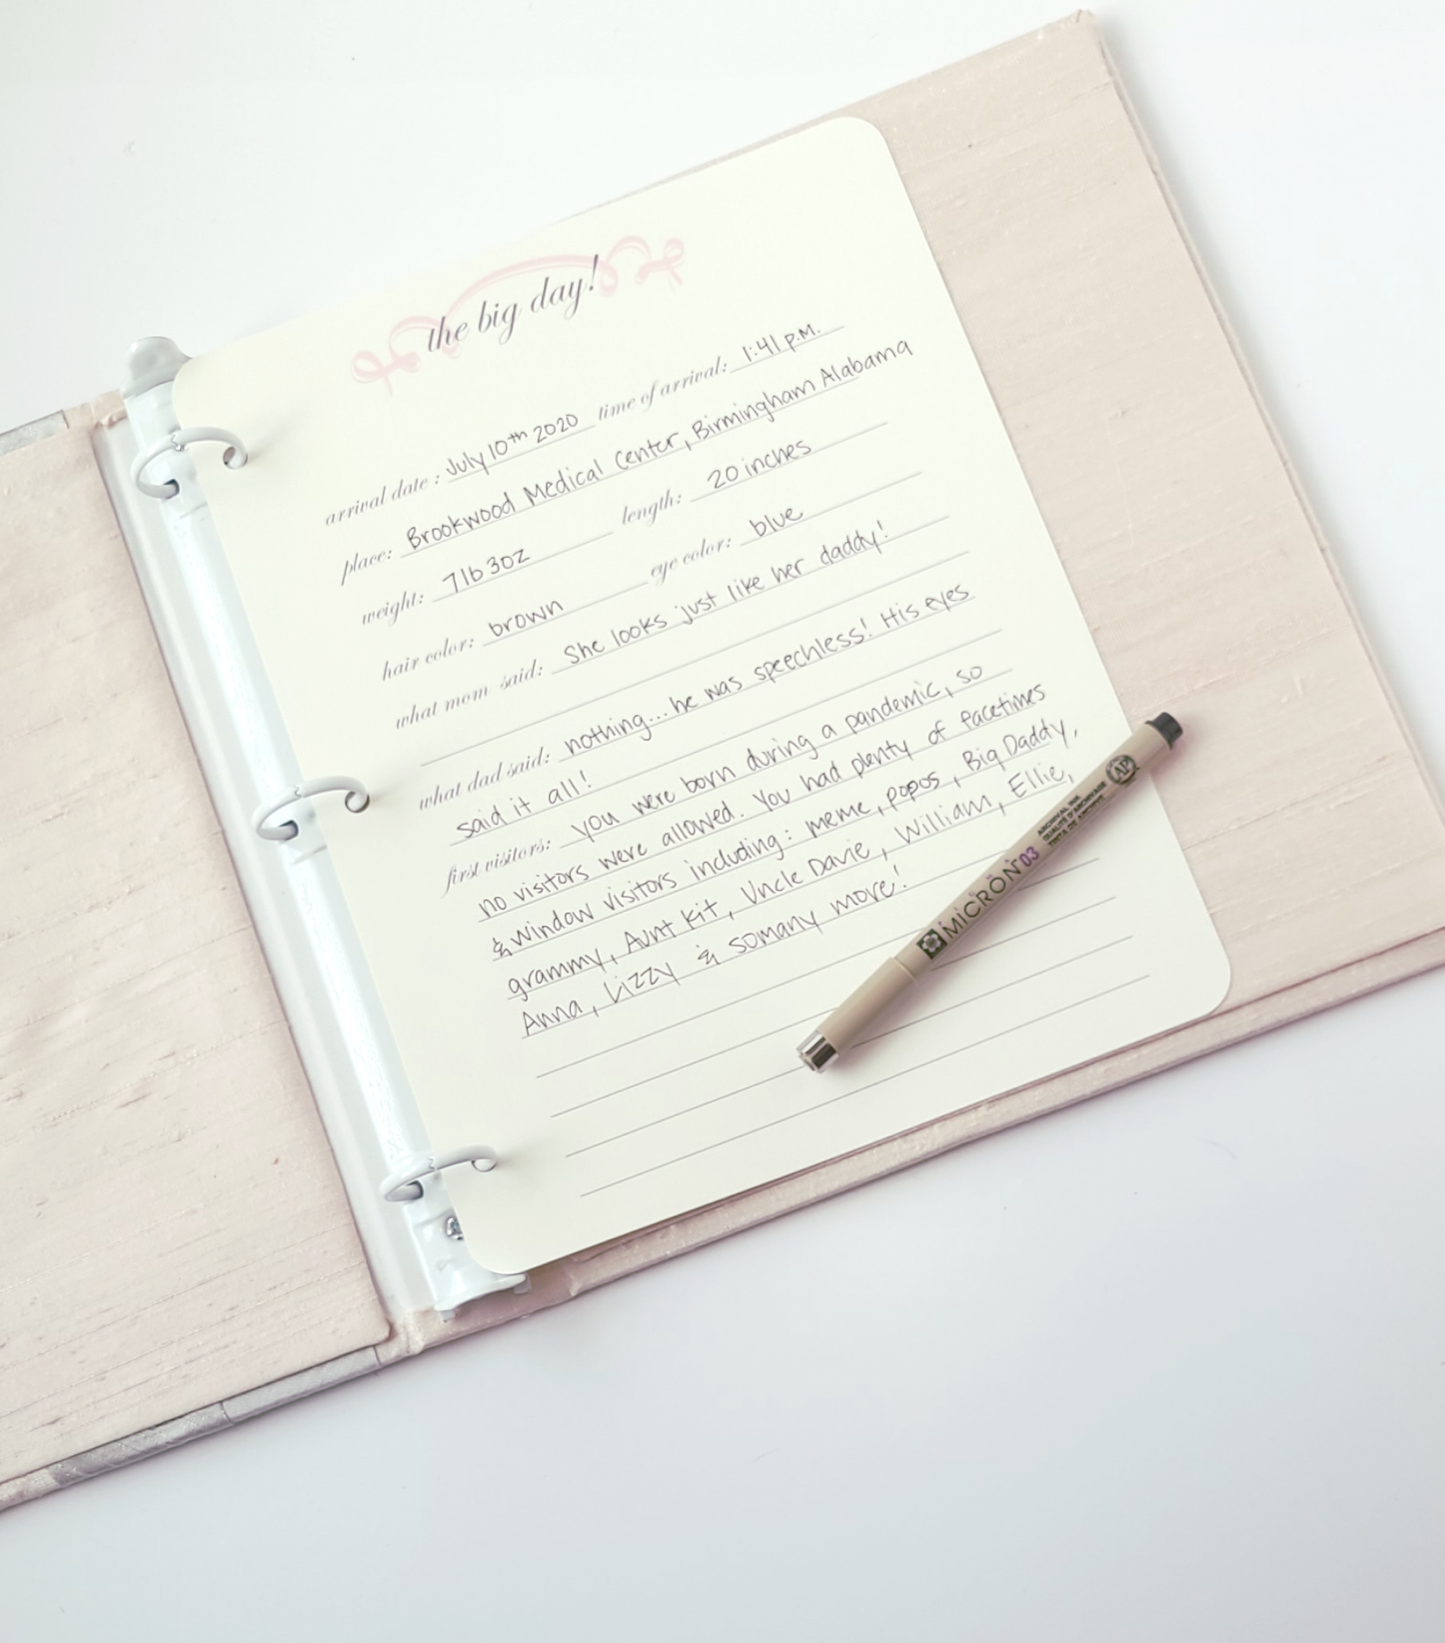 the big day!
arrival date: July 10th 2020 time of arrival: 1:41 p.M.
place: Brookwood Medical Center, Birmingham Alabama
weight: 7lb 3oz length: 20 inches
hair color: brown eye color: blue
what mom said: She looks just like her daddy!
what dad said: nothing... he was speechless! His eyes
said it all!
first visitors: you were born during a pandemic, so
no visitors were allowed. You had plenty of facetimes
& window visitors including: meme, popos, Big Daddy,
grammy, Aunt Kit, Uncle Davie, William, Ellie,
Anna, Lizzy & so many more!
MICRON 03
ARCHIVAL INK
QUALITÉ D'ARCHIVAGE
TINTA DE ARCHIVO
AP